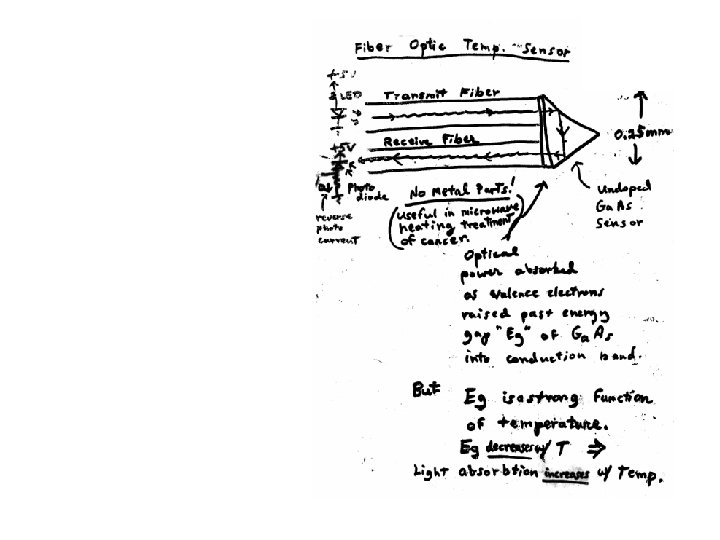 Fiber Optic Temp. Sensor
+5V
LED
Transmit Fiber
Receive Fiber
+5V
Photo
diode
reverse
photo
current
0.25mm
Undoped
GaAs
Sensor
No Metal Parts!
(Useful in microwave
heating treatment
of cancer.)
Optical
power absorbed
as valence electrons
raised past energy
gap "Eg" of GaAs
into conduction band.
But Eg is a strong function
of temperature.
Eg decreases w/ T ⇒
Light absorbtion increases w/ Temp.